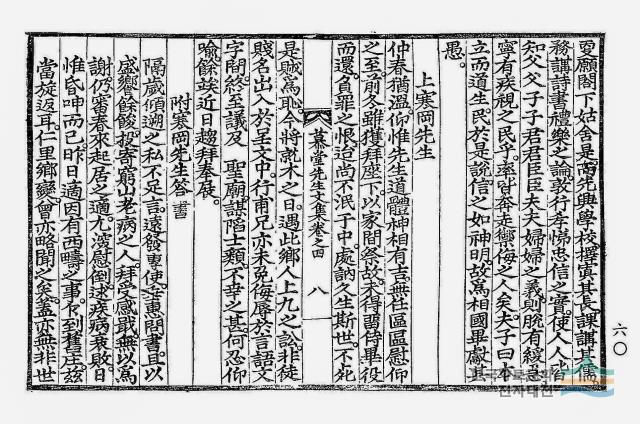 更願閤下姑舍是焉先興學校擇寘其長課講其儒
務講詩書禮樂之論敦行孝悌忠信之實使人人皆
知父父子子君君臣臣夫夫婦婦之義則脫有緩急
寧有疾視之民乎率皆奔走禦侮之人矣夫子曰本
立而道生民於是說信之如神明故爲相國畢獻其
愚
上寒岡先生
仲春猶溫仰惟先生道體神相有吉無任區區慰仰
之至前冬雖獲拜座下以家間祭故未得留侍畢役
而還負罪之恨迨尚不泯于中處訥久生斯世不死
慕堂先生文集卷之四 八
是賊爲恥今將就木之日遇此鄉人上九之訟非徒
賤名出入於呈文中行甫兄亦未免侮辱於言語文
字間終至議及 聖廟誣陷士類不幸之甚何忍仰
喩餘竢近日趨拜奉展
附寒岡先生答書
隔歲傾遡之私不足言遠發專使委惠問書且以
盛饗餘酸投寄窮山老病之人拜受感戢無以爲
謝仍審春來起居之適尤濱慰倒逑疾病衰敗日
惟昏呻而已昨日適因有西疇之事乍到舊庄玆
當旋返耳仁里鄉變曾亦略聞之矣蓋亦無非世
六〇
전자대전